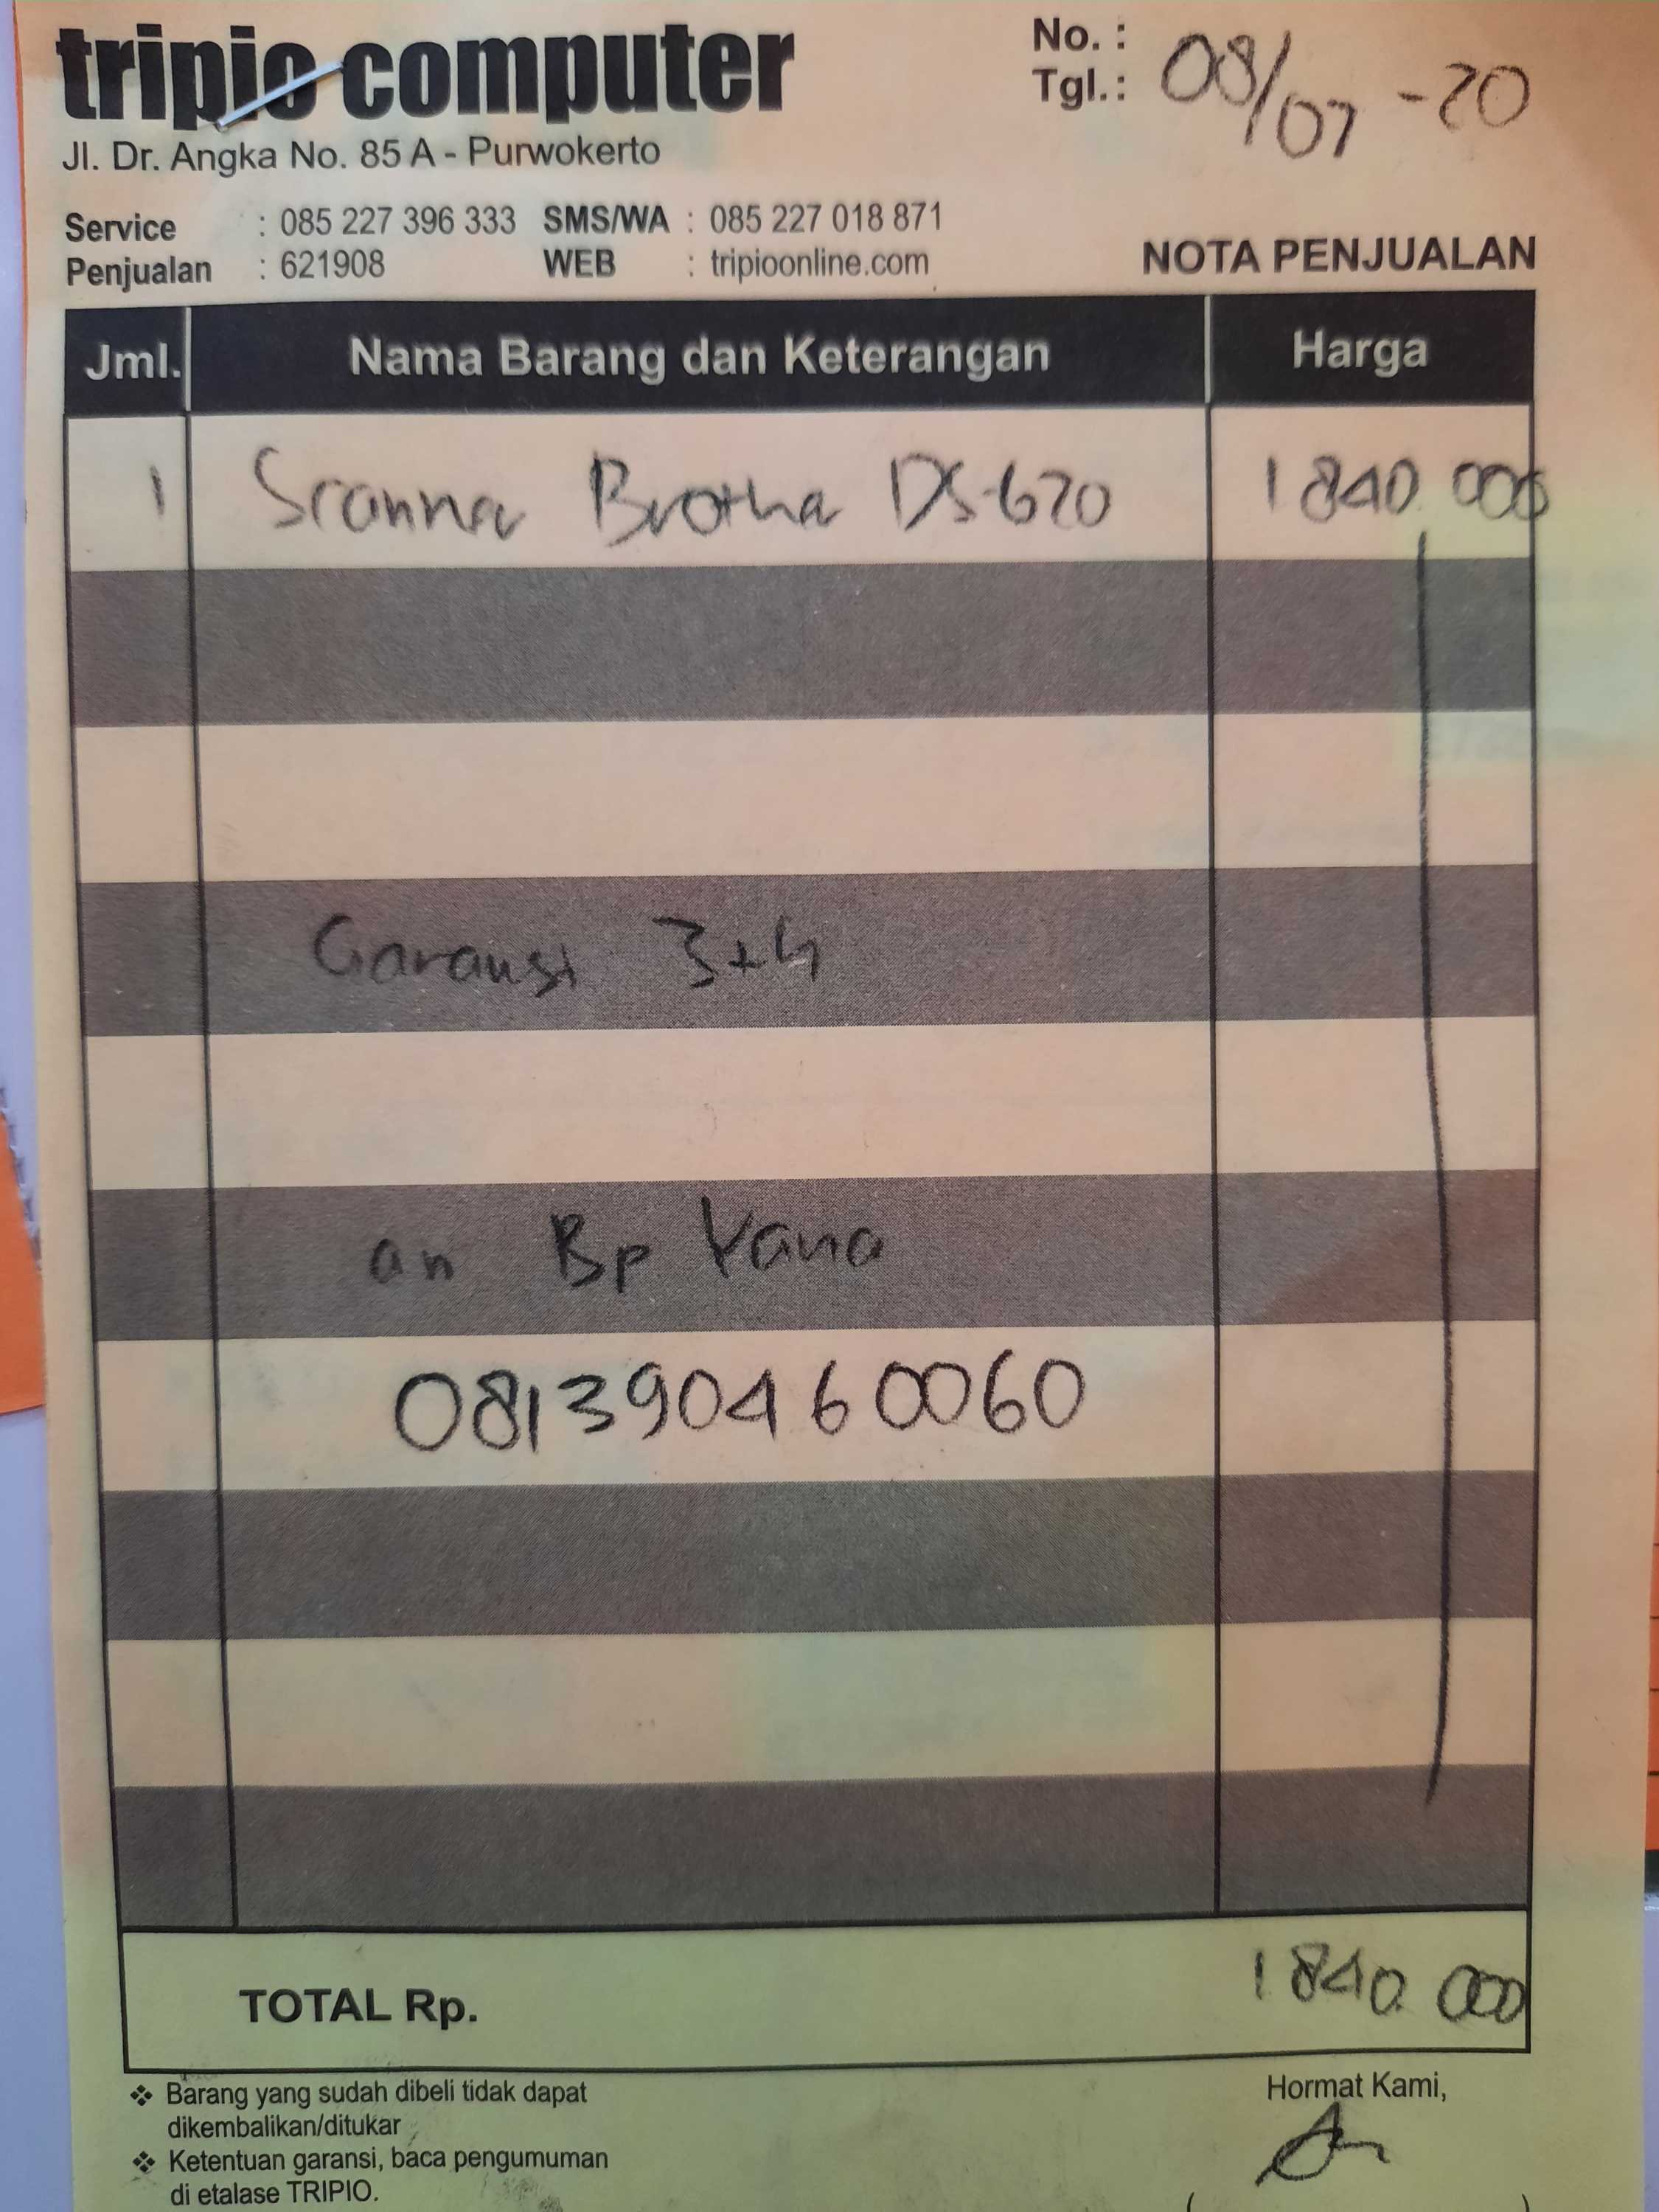 tripio computer
No. :
Tgl.: 08/07-20
Jl. Dr. Angka No. 85 A - Purwokerto
Service : 085 227 396 333 SMS/WA : 085 227 018 871
Penjualan : 621908 WEB : tripioonline.com
NOTA PENJUALAN
Jml. Nama Barang dan Keterangan Harga
1 Scanner Brother DS-620 1840.000
Garansi 3+4
an Bp Yana
081390460060
TOTAL Rp. 1840.000
❖ Barang yang sudah dibeli tidak dapat
dikembalikan/ditukar
❖ Ketentuan garansi, baca pengumuman
di etalase TRIPIO.
Hormat Kami,
( )